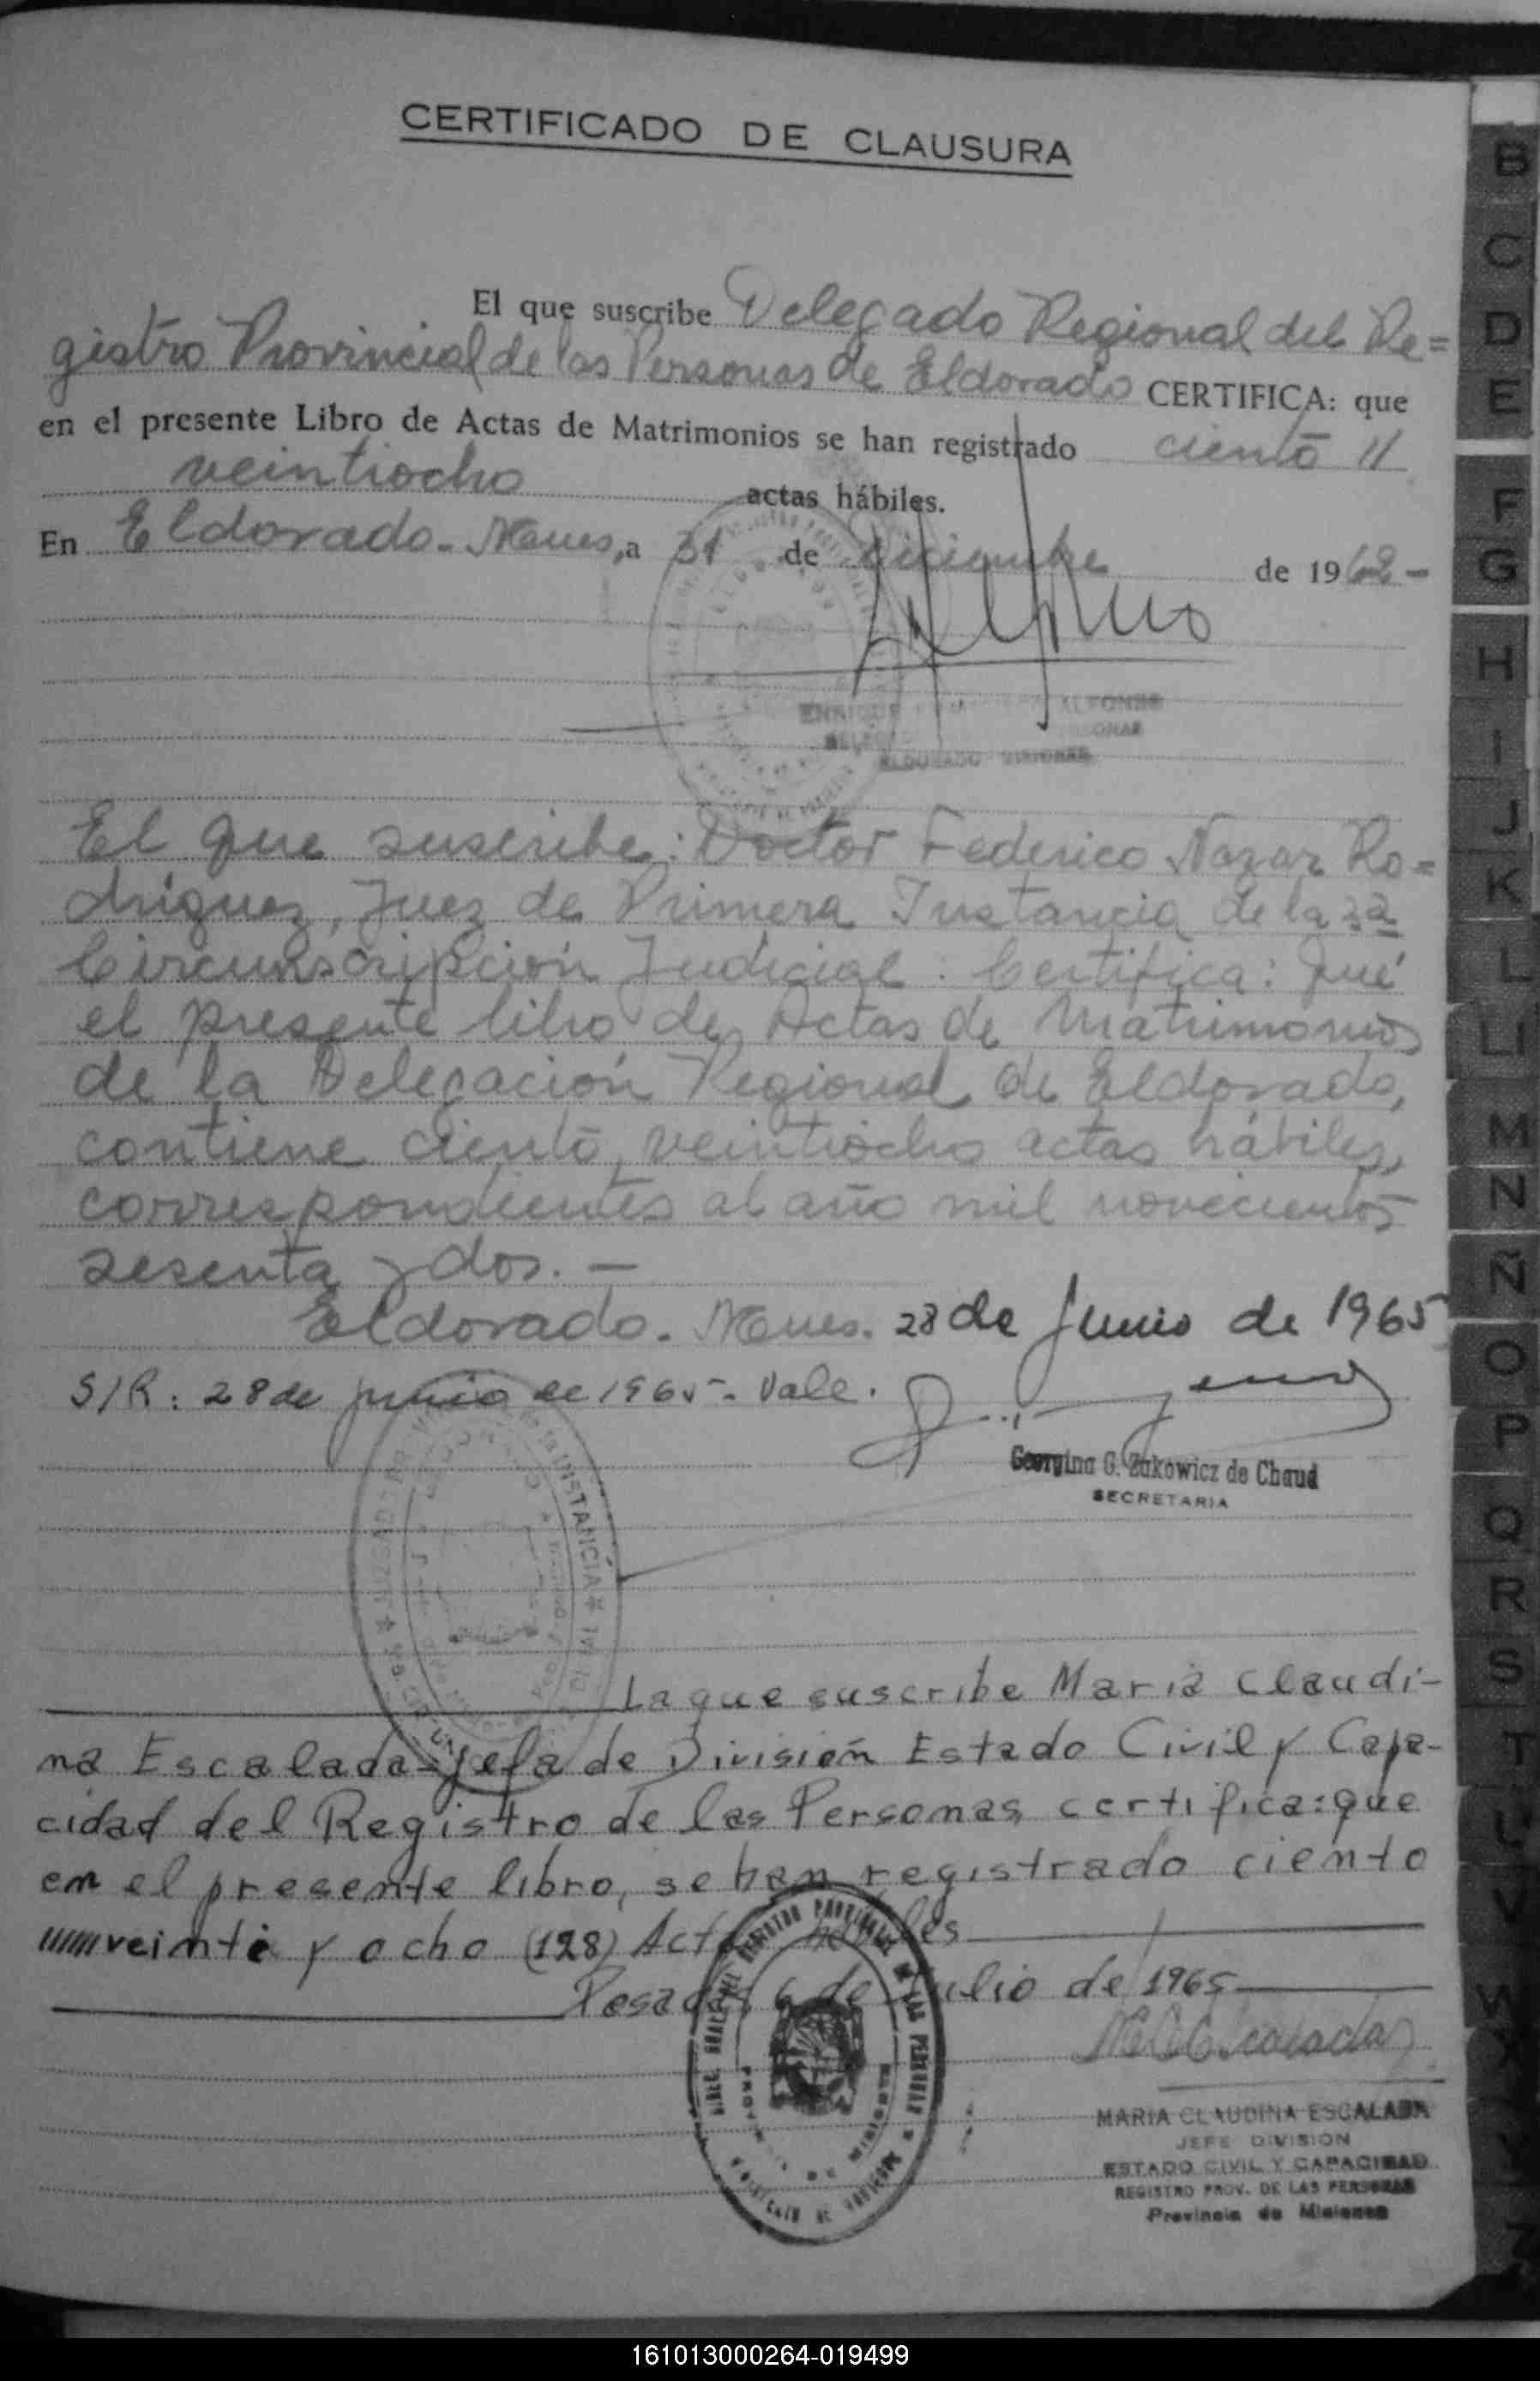 CERTIFICADO DE CLAUSURA
El que suscribe Delegado Regional del Re=
gistro Provincial de las Personas de Eldorado CERTIFICA: que
en el presente Libro de Actas de Matrimonios se han registrado ciento //
veintiocho actas hábiles.
En Eldorado. Mnes, a 31 de diciembre de 1962 -
ENRIQUE ALFONSO
ELDORADO MISIONES
El que suscribe: Doctor Federico Nazar Ro=
dríguez, Juez de Primera Instancia de la 3a
Circunscripción Judicial: Certifica: Qué
el presente libro de Actas de Matrimonios
de la Delegación Regional de Eldorado,
contiene ciento, veintiocho actas hábiles,
correspondientes al año mil novecientos
sesenta y dos. -
Eldorado. Mnes. 28 de Junio de 1965
S/R: 28 de junio de 1965 - Vale.
Georgina G. Zukowicz de Chaud
SECRETARIA
INSTANCIA
La que suscribe Maria Claudi-
na Escalada - Jefa de División Estado Civil y Capa-
cidad del Registro de las Personas certifica: que
en el presente libro, se han registrado ciento
veinte y ocho (128) Actas hábiles
Posadas, 6 de Julio de 1965
MARIA CLAUDINA ESCALADA
JEFE DIVISION
ESTADO CIVIL Y CAPACIDAD
REGISTRO PROV. DE LAS PERSONAS
Provincia de Misiones
B
C
D
E
F
G
H
I
J
K
L
LL
M
N
Ñ
O
P
Q
R
S
T
U
V
W
X
Y
Z
161013000264-019499